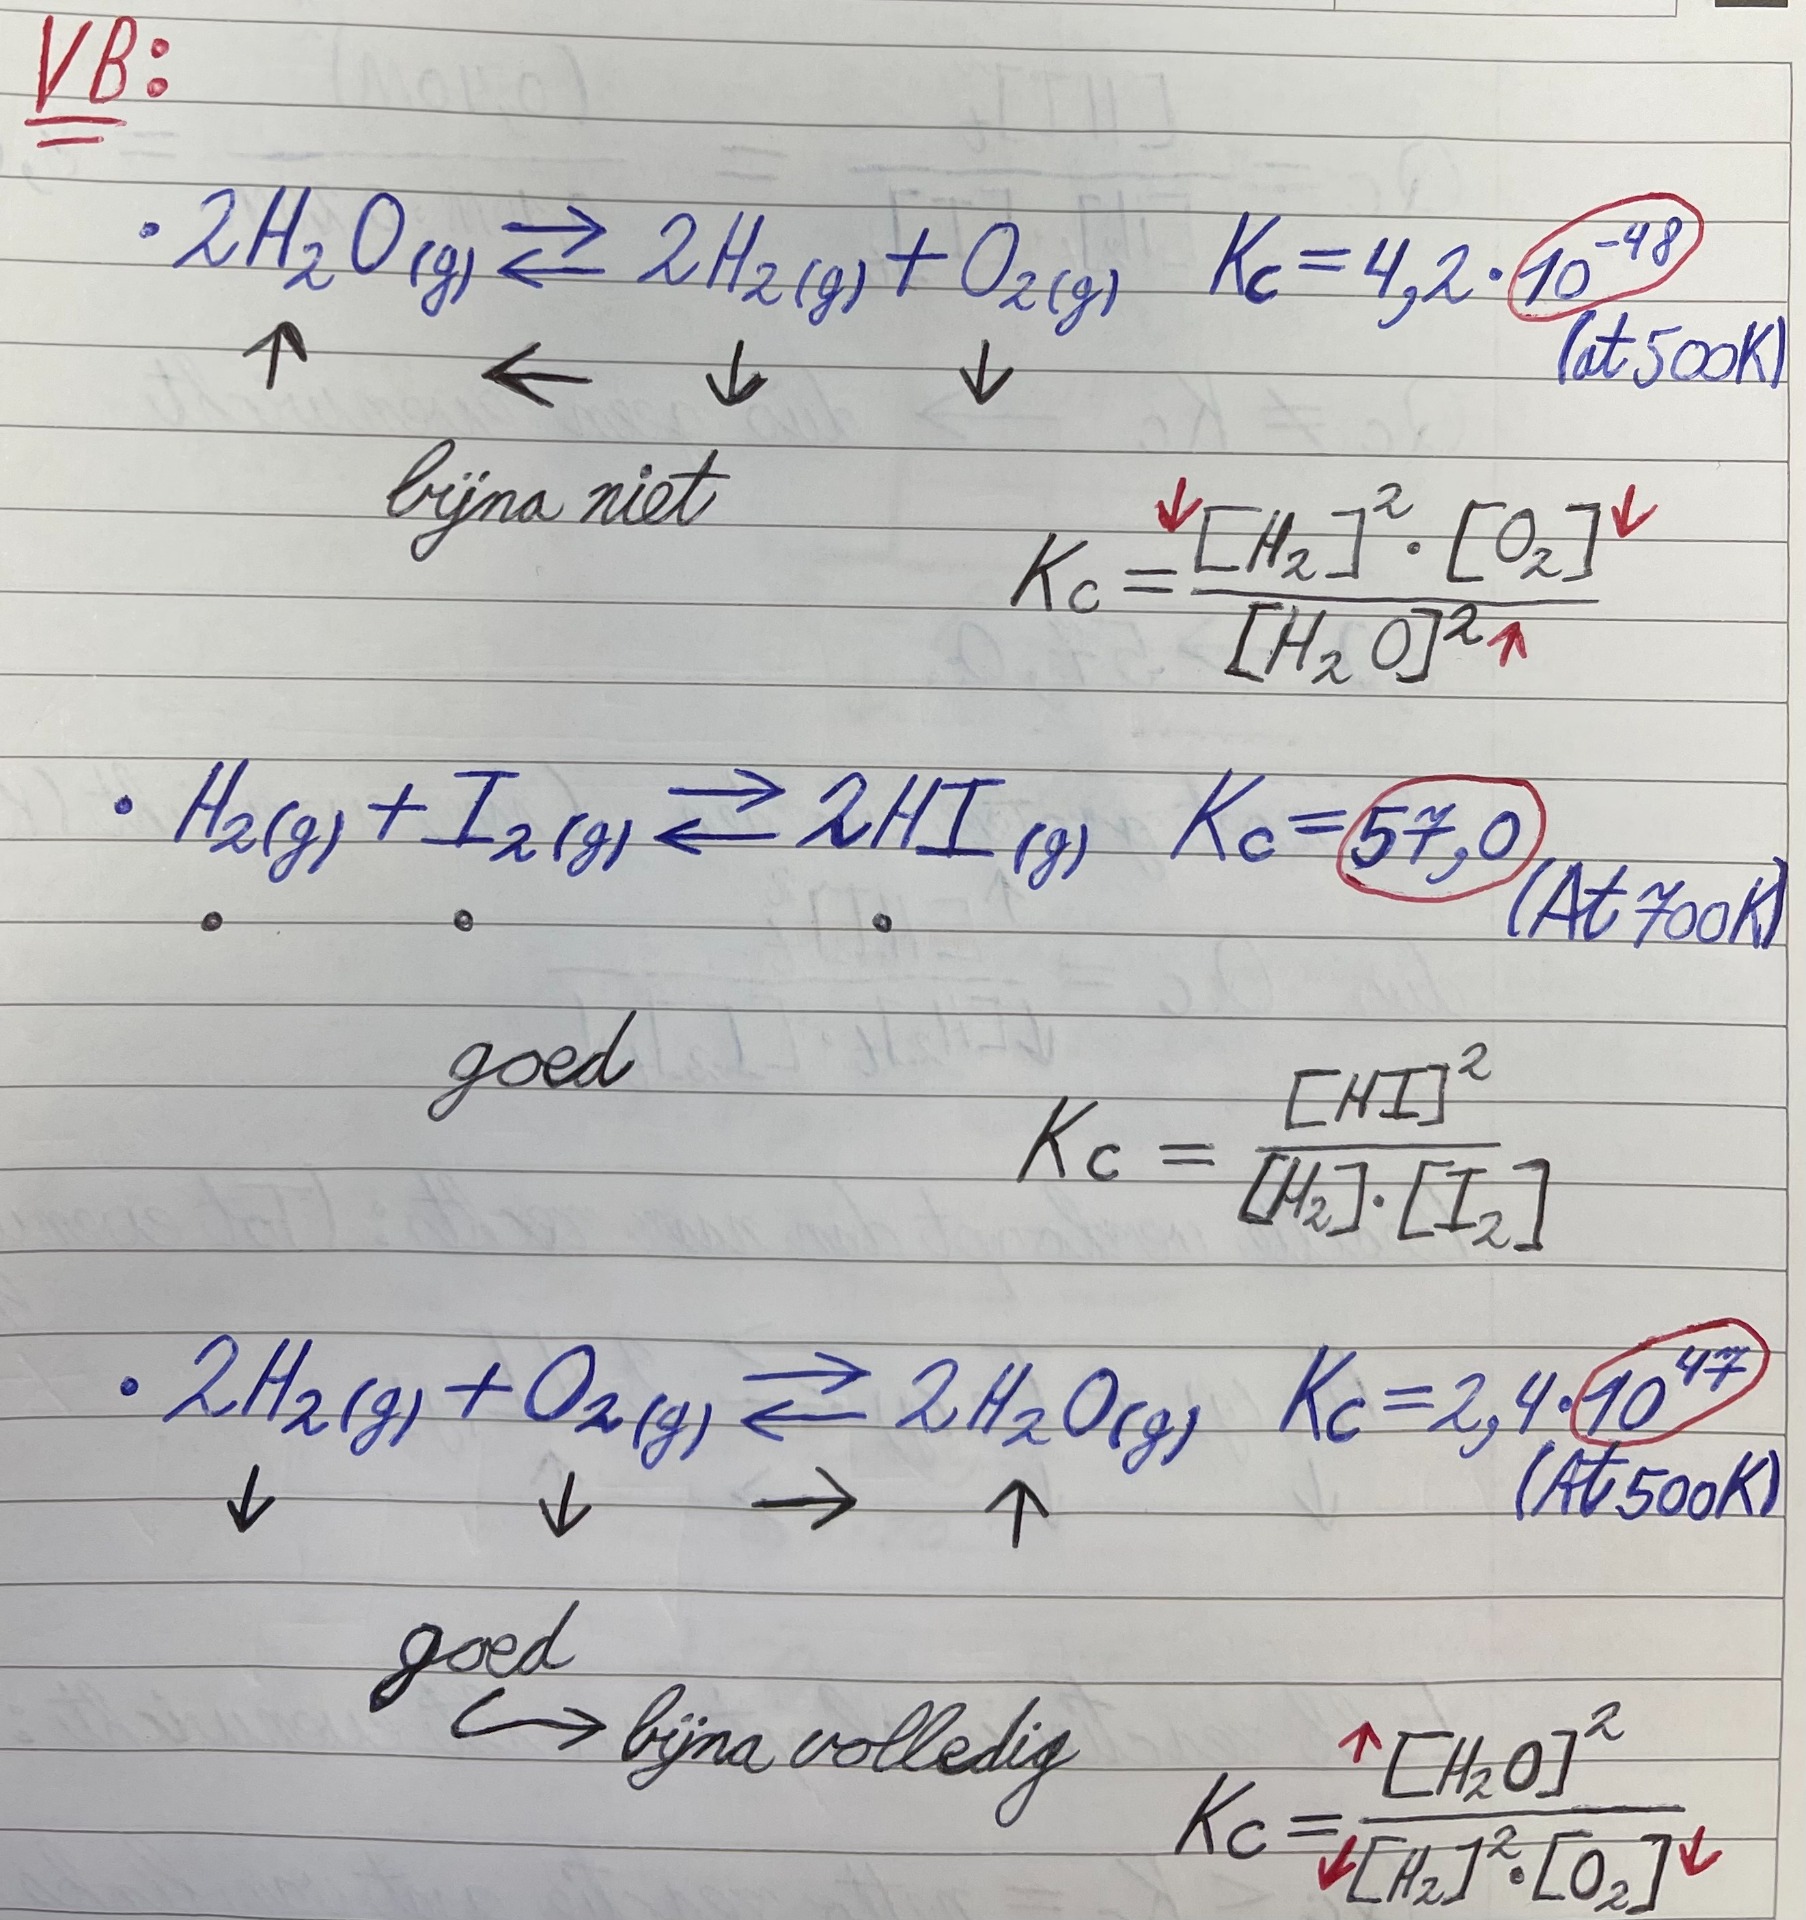 VB:
· 2H₂O(g) ⇌ 2H₂(g) + O₂(g) Kc = 4,2 · 10⁻⁴⁸
(at 500K)
↑ ← ↓ ↓
bijna niet
↓[H₂]² · [O₂]↓
Kc =
[H₂O]²↑
· H₂(g) + I₂(g) ⇌ 2HI(g) Kc = 57,0
(At 700K)
• • •
goed
[HI]²
Kc =
[H₂] · [I₂]
· 2H₂(g) + O₂(g) ⇌ 2H₂O(g) Kc = 2,4 · 10⁴⁷
(At 500K)
↓ ↓ → ↑
goed
↪ bijna volledig
↑[H₂O]²
Kc =
↓[H₂]² · [O₂]↓